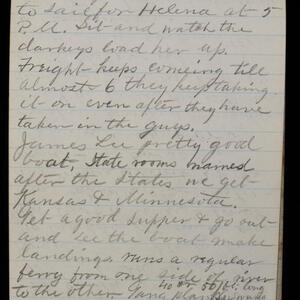 to sail for Helena at 5
P.M. Sit and watch the
darkeys load her up.
Freight keeps comeing till
almost 6 they keep taking
it on even after they have
taken in the guys.
James Lee pretty good
boat, State rooms named
after the States we get
Kansas & Minnesota.
Get a good supper & go out
and see the boat make
landings runs a regular
ferry from one side of river
40 or 50 ft. long
to the other. Gang plank